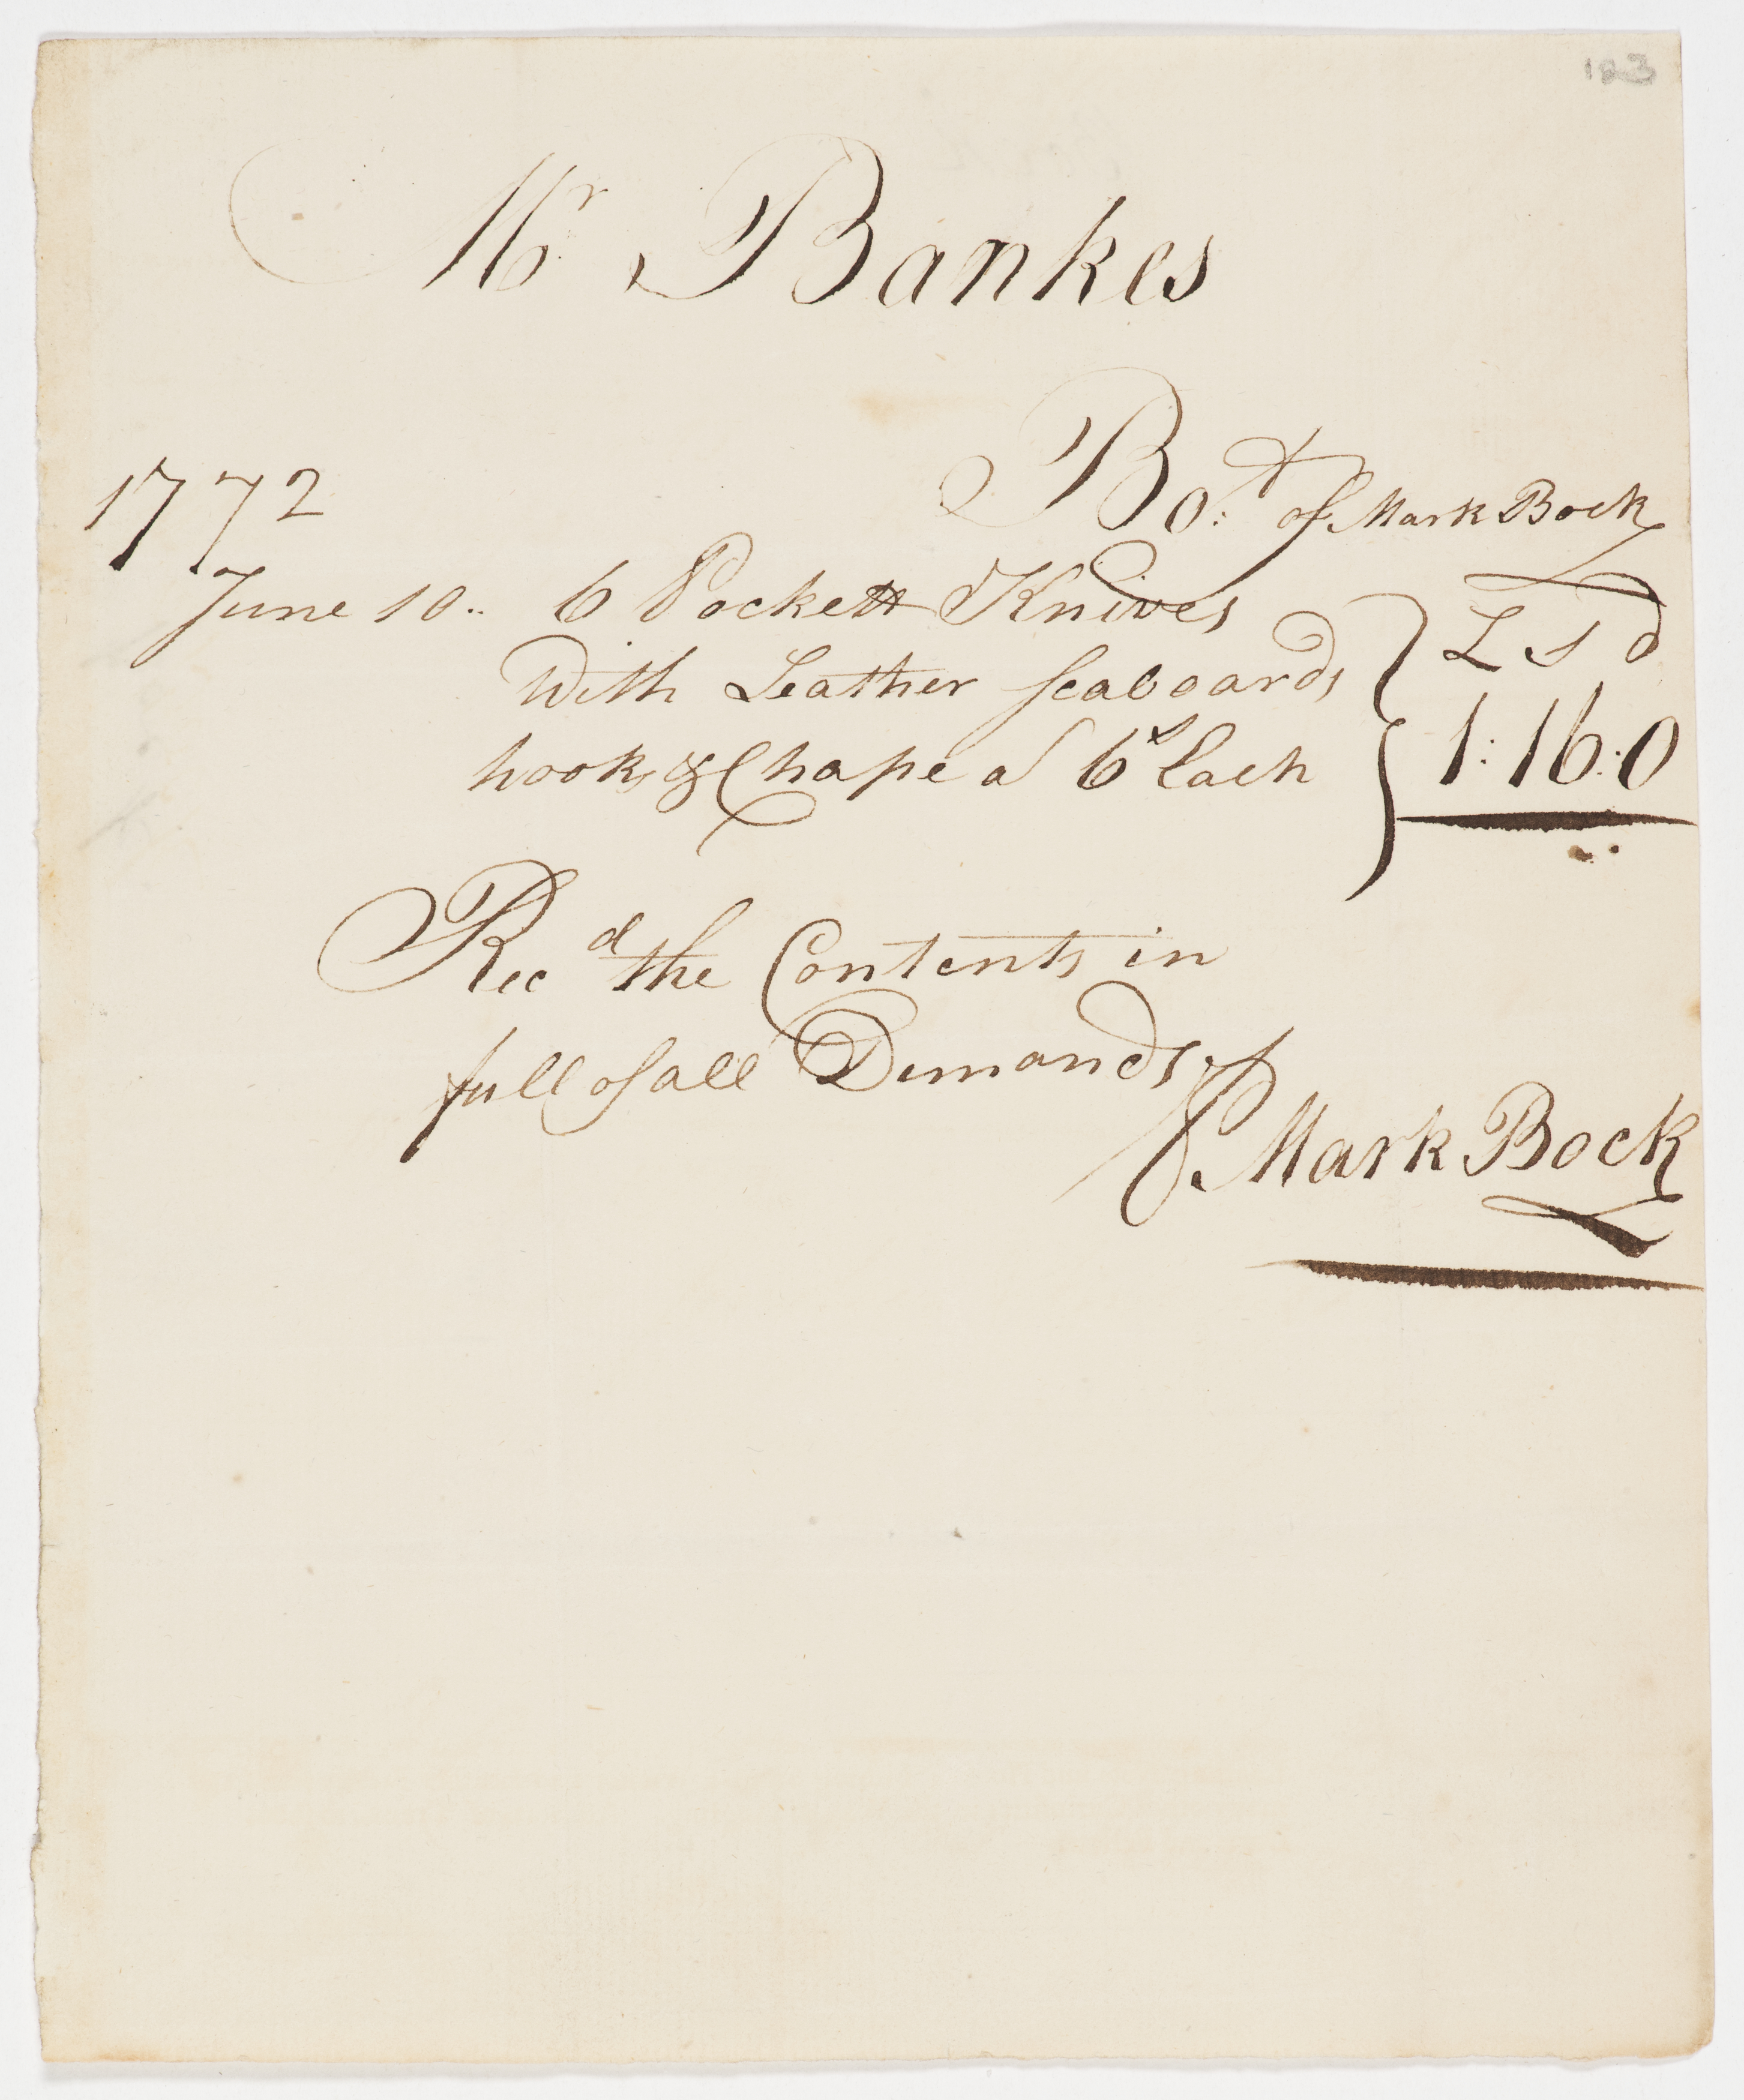 183
Mr Bankes
Bo:t of Mark Bock
1772
June 10.. 6 Pockett Knives
With Leather scaboards
hook & Chape a 6s Each
L s d
1:16:0
Recd the Contents in
full of all Demands
Mark Bock